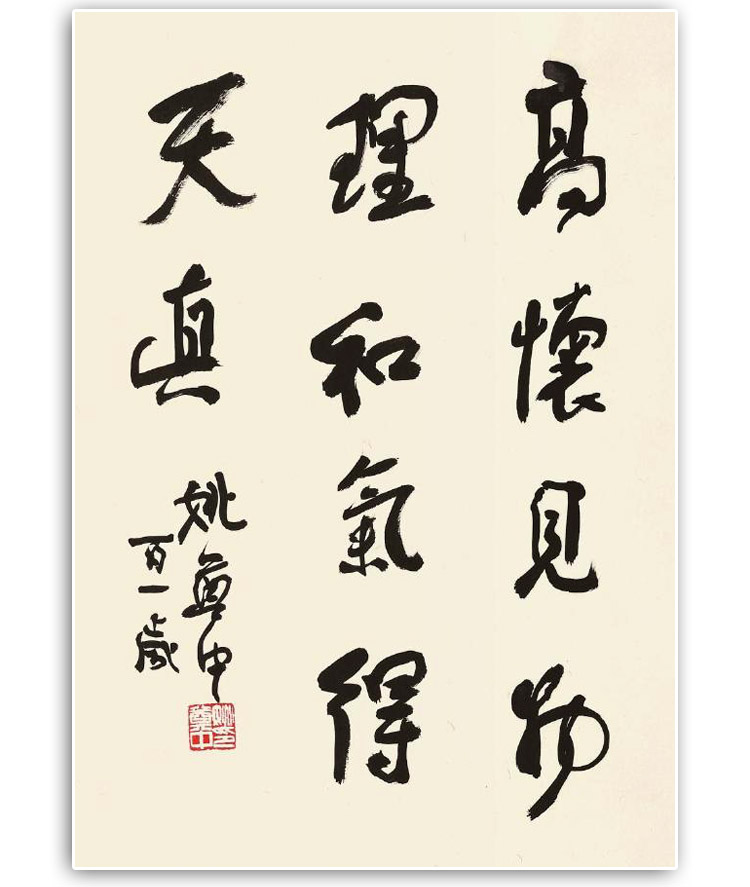 高懷見物
理和氣得
天真
姚奠中
百一歲
姚奠中印